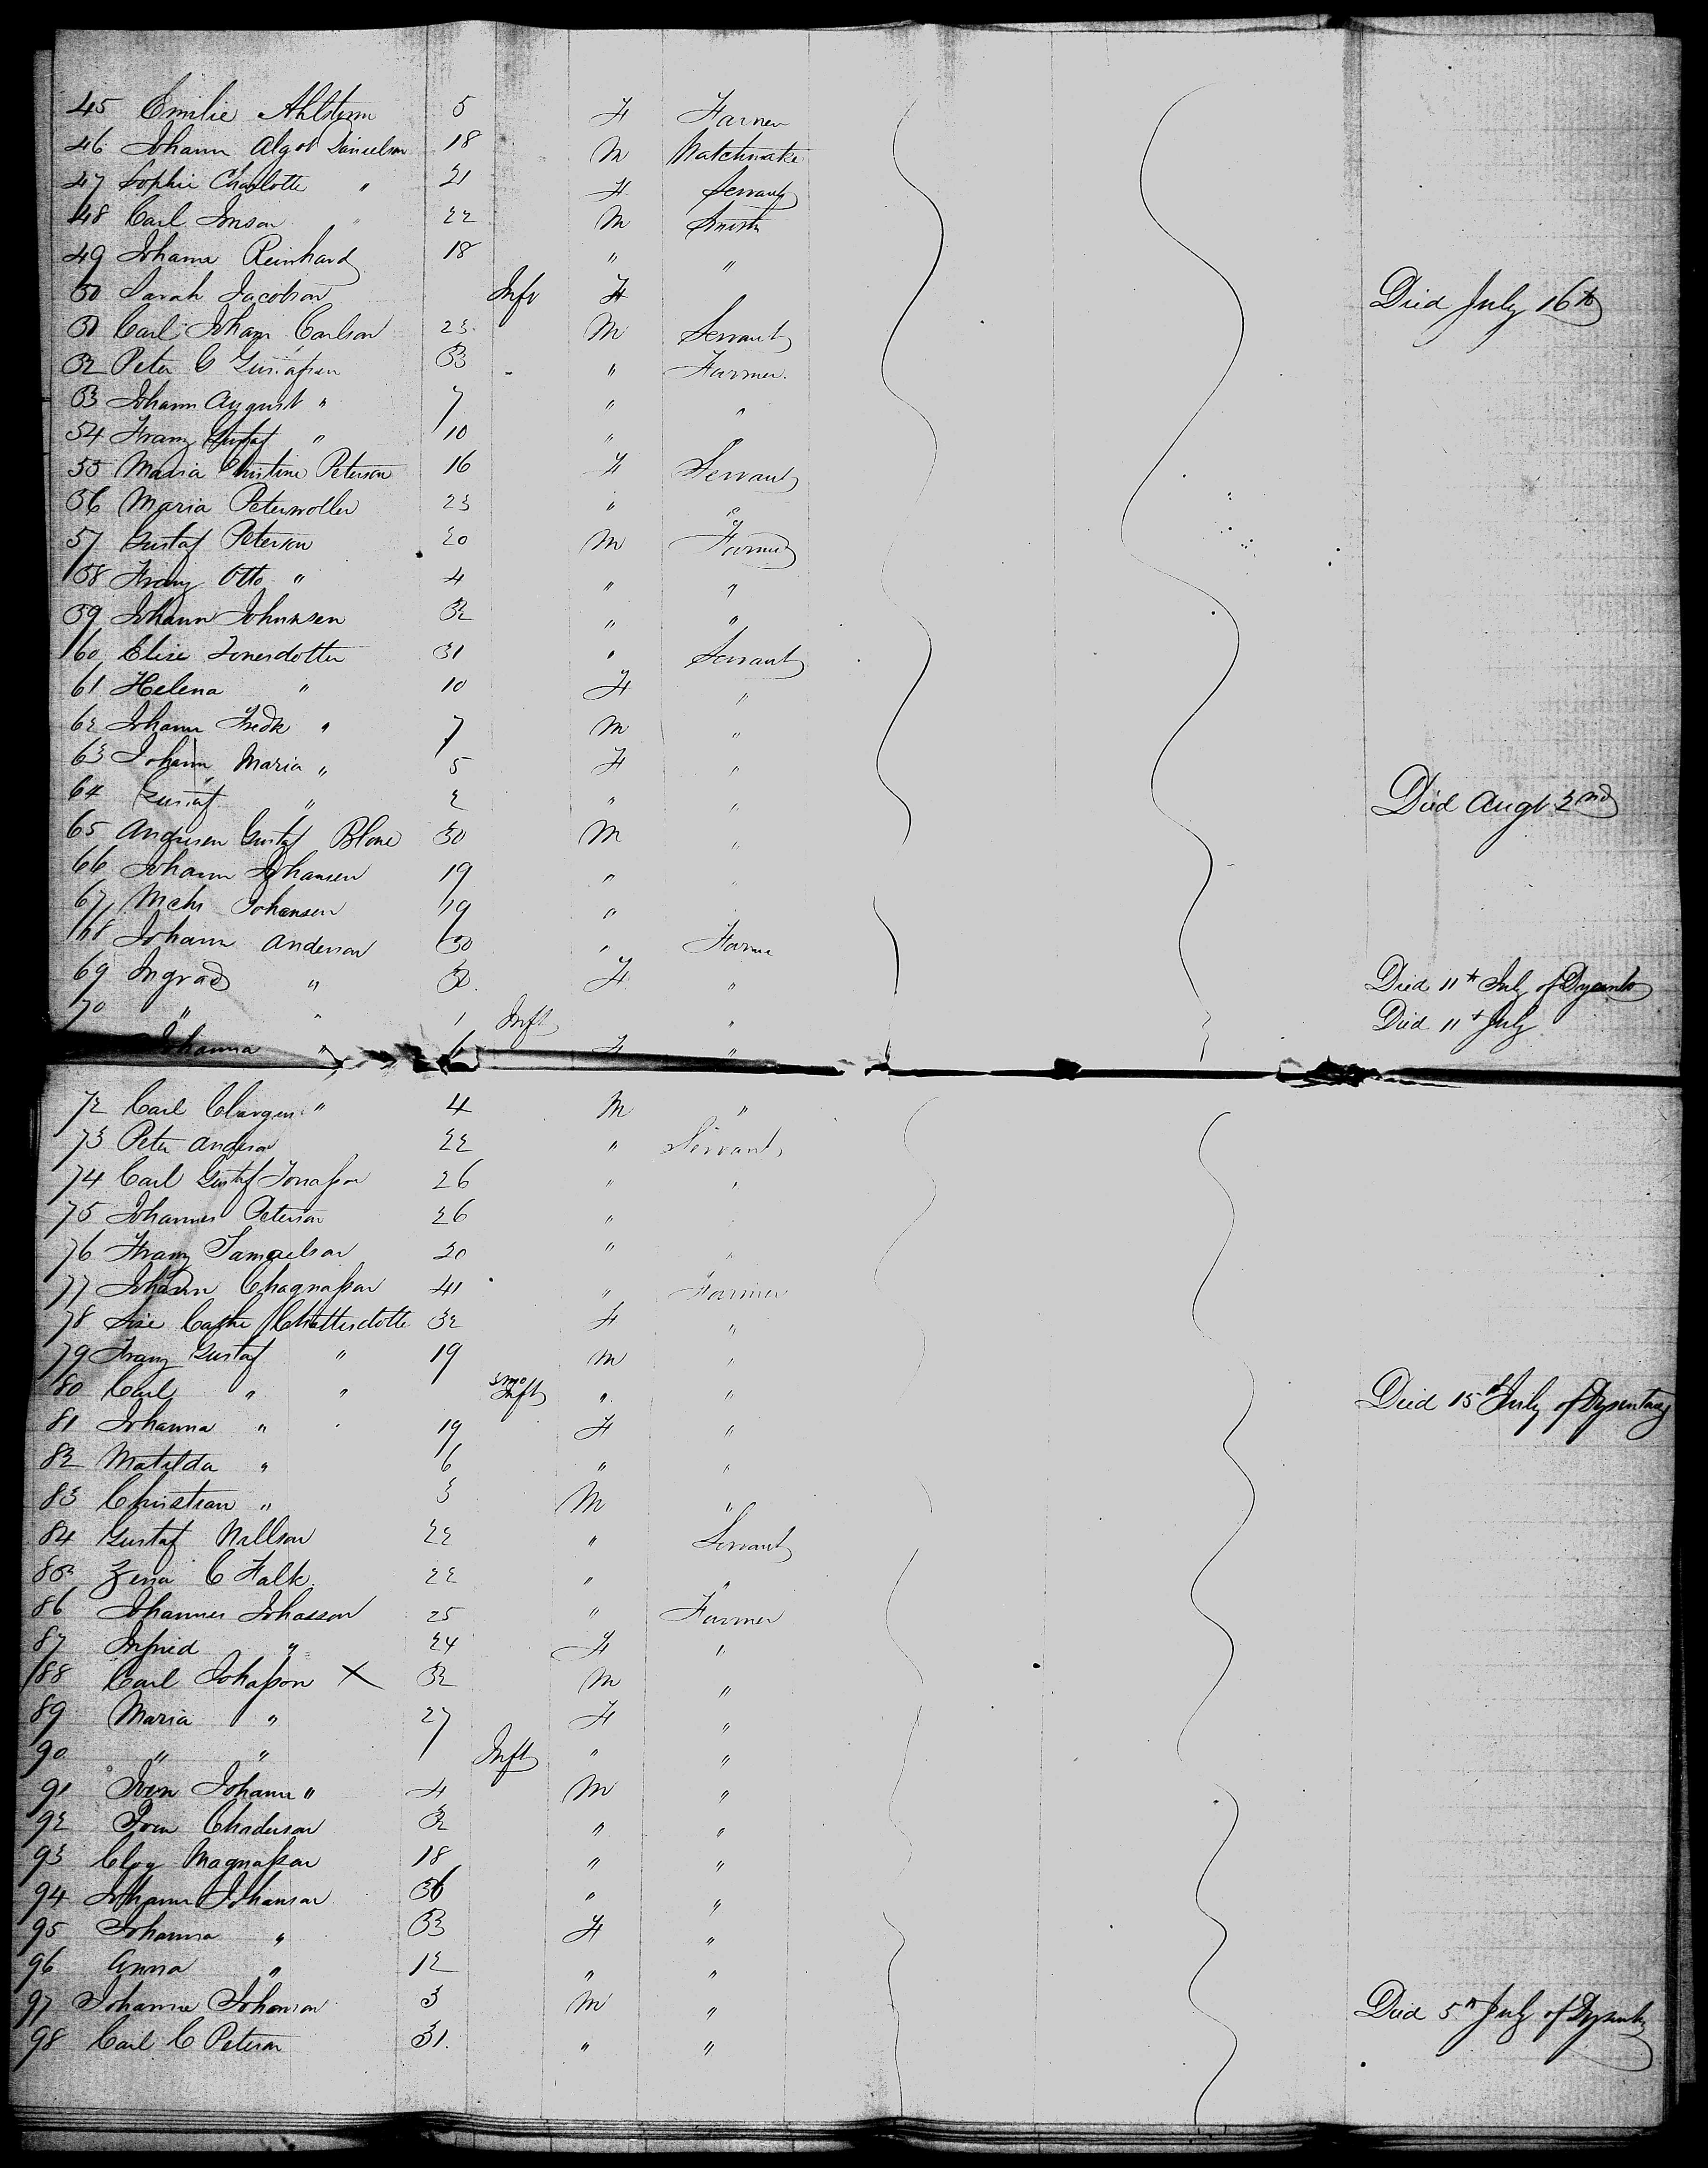 45 Emilie Ahlstrom 5 F Farmer
46 Johann Algot Danielson 18 M Watchmake
47 Sophie Charlotte " 21 F Servant
48 Carl Jonson " 22 M Smith
49 Johann Reinhard 18 " "
50 Sarah Jacobson Inft F " Died July 16th
51 Carl Johann Carlson 23 M Servant
52 Peter C Gustafsen 33 " Farmer
53 Johann August " 7 " "
54 Franz Gustaf " 10 " "
55 Maria Christine Peterson 16 F Servant
56 Maria 23 " "
57 Gustaf Peterson 20 M Farmer
58 Franz Otto " 4 " "
59 Johann Johnnsen 32 " "
60 Elise Jonesdotter 31 " Servant
61 Helena " 10 F "
62 Johann Fredk " 7 M "
63 Johann Maria " 5 F "
64 Gustaf " 2 " " Died Augt 2nd
65 Andresen Gustaf Blone 30 M "
66 Johann Johansen 19 " "
67 Johansen 19 "
68 Johann Anderson 30 " Farme
69 Ingrad " 32 F " Died 11th July of
70 " " 1 Inft " Died 11th July
Johanna " 6 F "
72 Carl " 4 M "
73 Peter Anderson 22 " Servant
74 Carl Gustaf Jonasson 26 " "
75 Johannes Peterson 26 "
76 Franz Samuelson 20 " "
77 Johann 41 " Farmer
78 32 F "
79 Franz Gustaf " 19 M "
80 Carl " " 3 mo Inft " " Died 15th July of Dysentary
81 Johanna " " 19 F "
82 Matilda " 6 " "
83 Christian " 3 M "
84 Gustaf Nillson 22 " Servant
85 C Falk 22 " "
86 Johannes Johasson 25 " Farmer
87 Infrid " 24 F "
88 Carl Johasson X 32 M "
89 Maria " 27 F "
90 " " 1 Inft " "
91 Sven Johann " 4 M "
92 Sven 32 " "
93 Magnasson 18 " "
94 Johann Johanson 36 " "
95 Johanna " 33 F "
96 Anna " 12 " "
97 Johanne Johanson 3 M " Died 5th July of
98 Carl C Peterson 31. " "